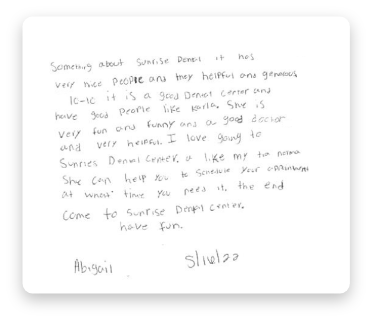 Something about Sunrise Dental it has
very nice people and they helpful and generous
10-10 it is a good Dental Center and
have good people like Karla. She is
very fun and funny and a good doctor
and very helpful. I love going to
Sunries Dental Center. a like my
She can help you to schedule your
at what time you need it. the end
come to Sunrise Dental Center.
have fun.
Abigail 5/16/22